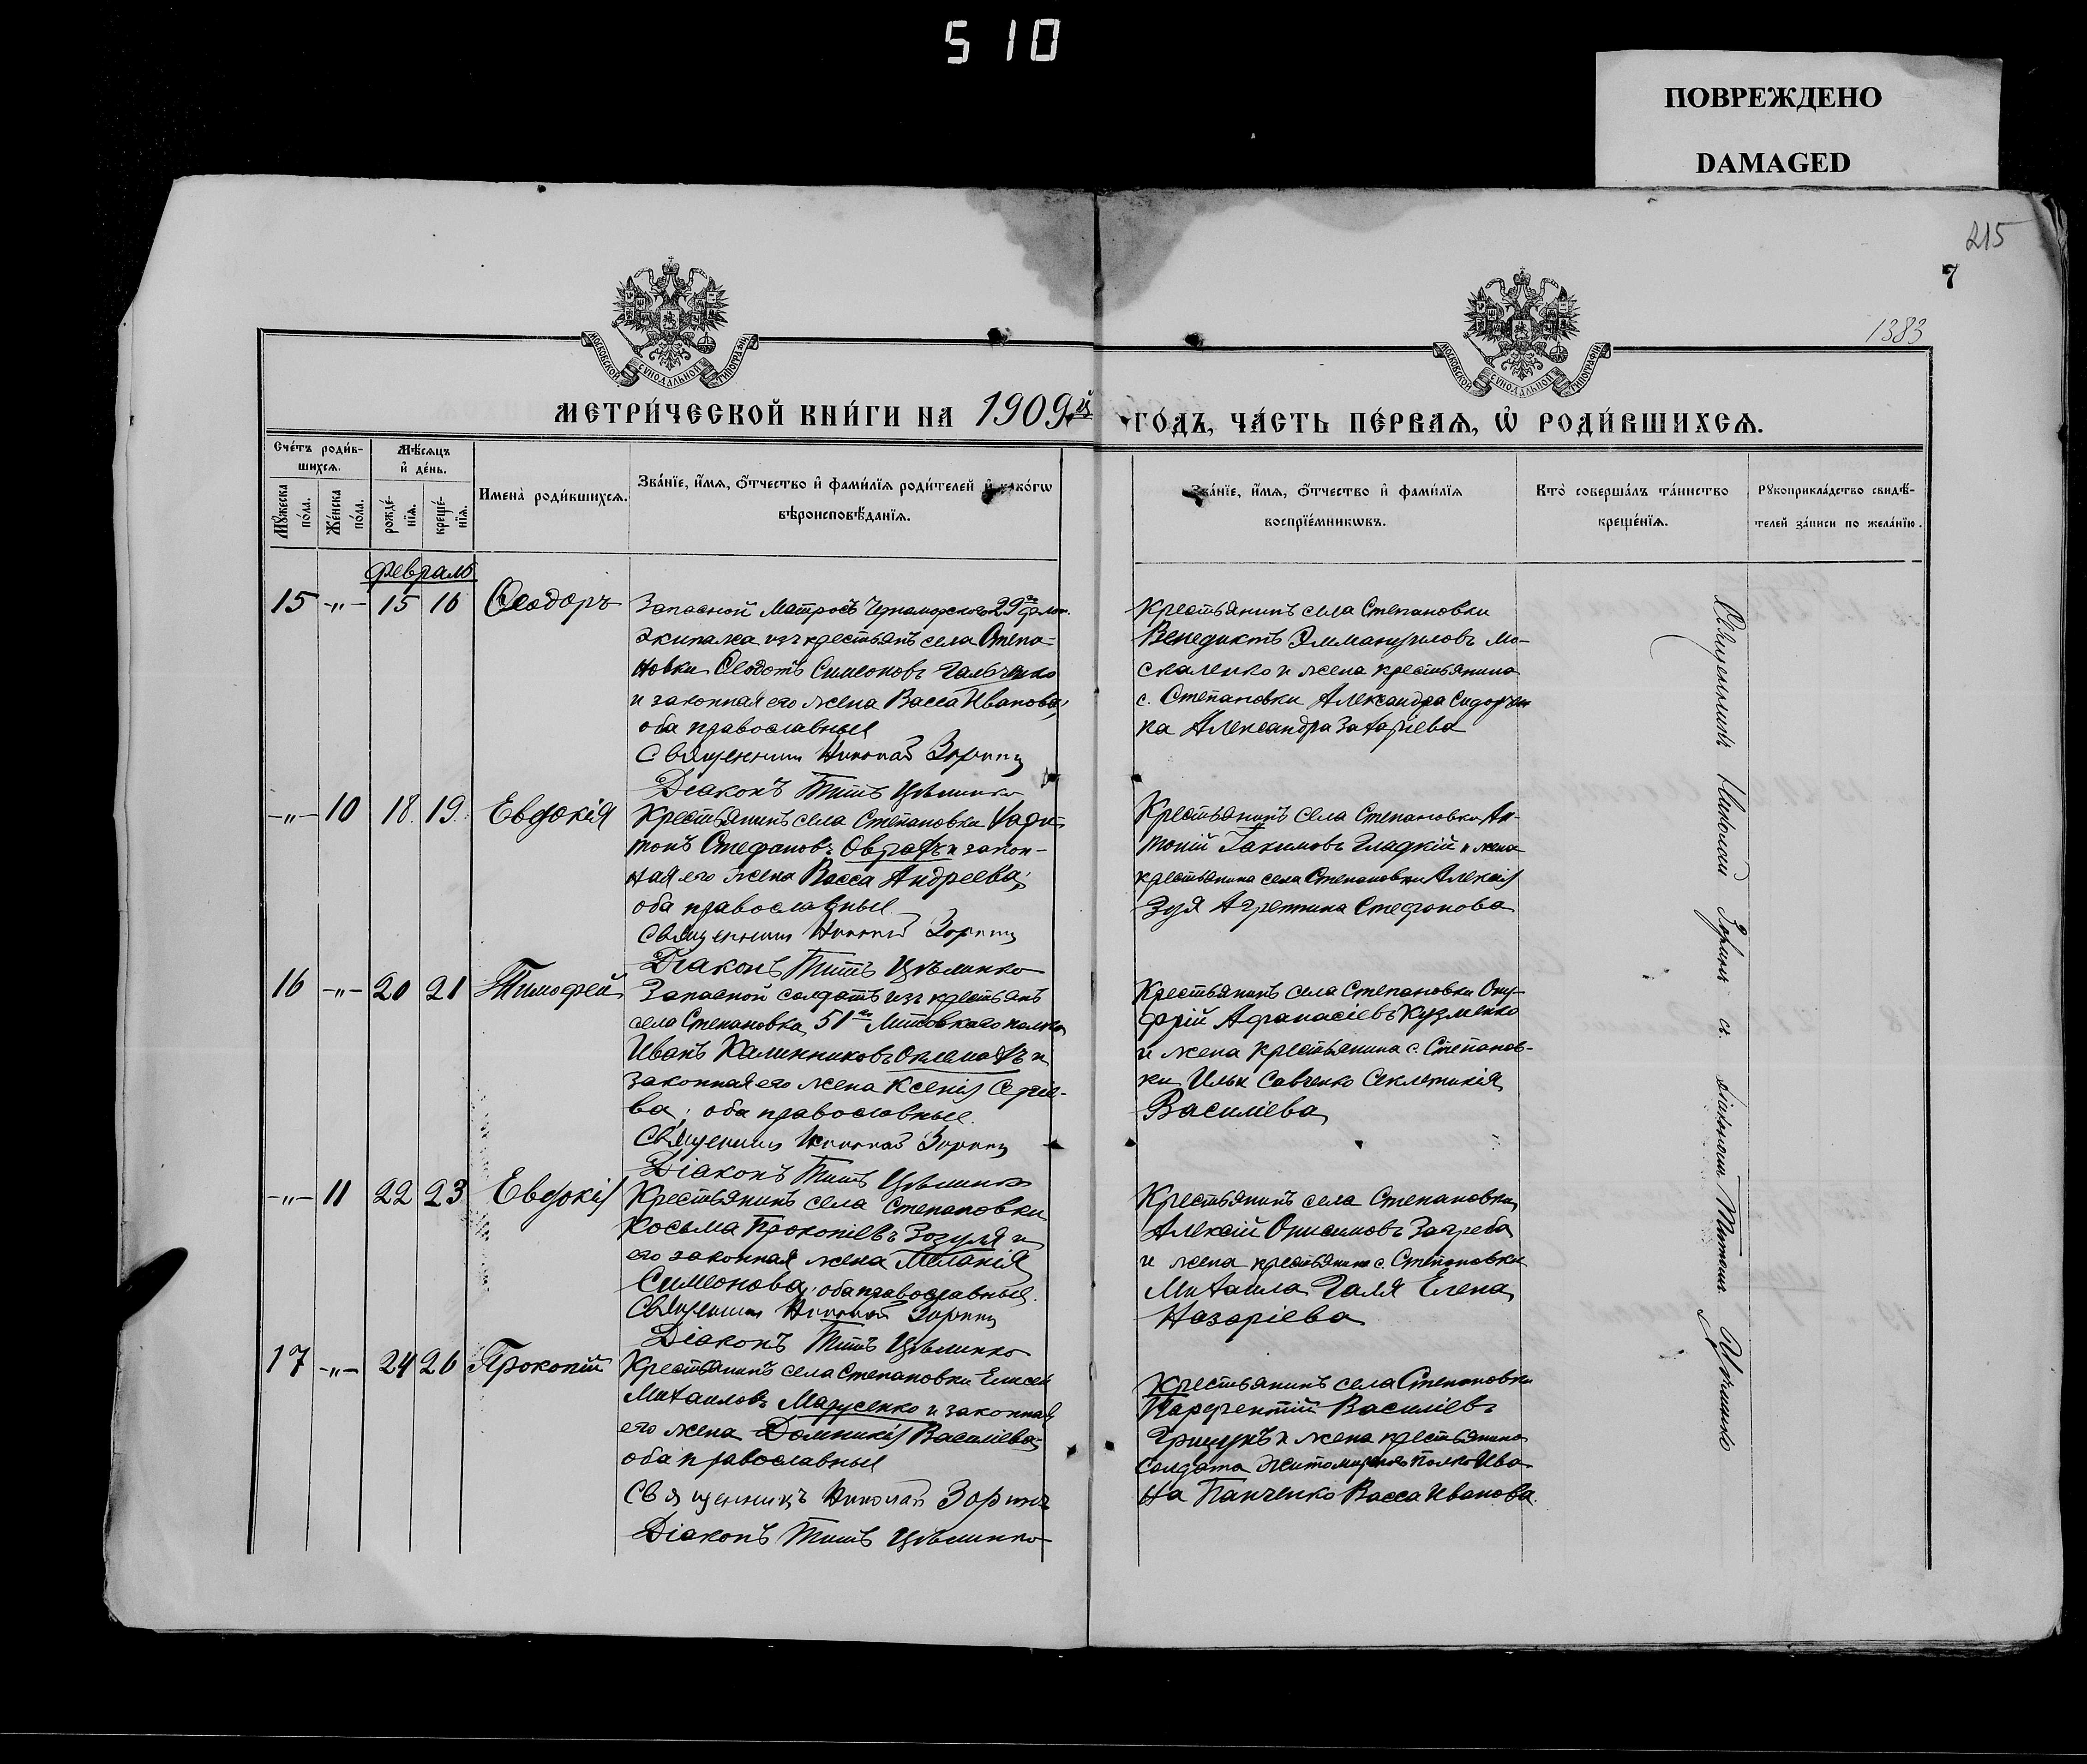 510
ПОВРЕЖДЕНО
DAMAGED
215
7
1383
МОСКОВСКОЙ СѴНОДАЛЬНОЙ ТИПОГРАФІИ
МОСКОВСКОЙ СѴНОДАЛЬНОЙ ТИПОГРАФІИ
МЕТРИ́ЧЕСКОЙ КНИ́ГИ НА 1909й ГО́ДЪ, ЧА́СТЬ ПЕ́РВАѦ, Ѽ РОДИ́ВШИХСѦ.
Сче́тъ роди́в-
шихсѧ.
Мꙋ́жеска по́ла.
Же́нска по́ла.
Мѣ́сѧцъ
и҆ де́нь.
рожде́-
нїѧ.
креще́-
нїѧ.
Имена̀ роди́вшихсѧ.
Зва́нїе, и҆́мѧ, ѻ҆́тчество и҆ фами́лїѧ роди́телей и҆ како́гѡ
вѣроисповѣ́данїѧ.
Зва́нїе, и҆́мѧ, ѻ҆́тчество и҆ фами́лїѧ
воспрїе́мникѡвъ.
Кто̀ соверша́лъ та́инство
креще́нїѧ.
Рꙋкоприкла́дство свидѣ́-
телей за́писи по жела́нїю.
Февраль
15 -"- 15 16 Ѳеодоръ
Запасной Матросъ Черноморскаго 29го флот.
экипажа изъ крестьянъ села Степа-
новки Ѳеодотъ Симеоновъ Гальченко
и законная его жена Васса Иванова;
оба православные
Священникъ Николай Зоринъ
Діаконъ Титъ Цѣлинко
Крестьянинъ села Степановки
Венедиктъ Эммануиловъ Мо-
скаленко и жена крестьянина
с. Степановки Александра Сидорчен
ка Александра Захаріева
-"- 10 18. 19. Евдокія
Крестьянинъ села Степановки
тонъ Стефановъ и закон-
ная его жена Васса Андреева;
оба православные.
Священникъ Николай Зоринъ
Діаконъ Титъ Цѣлинко
Крестьянинъ села Степановки Ан-
тоній Іакимовъ Гладкій и жена
крестьянина села Степановки Алексія
Зуя Агрепина Стефанова
16 -"- 20 21 Тимофей
Запасной солдатъ изъ крестьянъ
села Степановка, 51го Литовскаго полка
Иванъ Калинниковъ и
законная его жена Ксенія Сергіе-
ва; оба православные.
Священникъ Николай Зоринъ
Діаконъ Титъ Цѣлинко
Крестьянинъ села Степановки Ону-
фрій Афанасіевъ Кузменко
и жена крестьянина с. Степанов-
ки Ильи Савченко Секлетикія
Василіева
-"- 11 22 23 Евдокія
Крестьянинъ села Степановки
Косьма Прокопіевъ Зозуля и
его законная жена Меланія
Симеонова; оба православные.
Священникъ Николай Зоринъ
Діаконъ Титъ Цѣлинко
Крестьянинъ села Степановки
Алексій Онисимовъ Загреба
и жена крестьянина с. Степановки
Михаила Галя Елена
Назаріева
17 -"- 24 26 Прокопій
Крестьянинъ села Степановки Елисей
Михаиловъ Мадусенко и законная
его жена Домникія Василіева;
оба православные
Священникъ Николай Зоринъ
Діаконъ Титъ Цѣлинко
Крестьянинъ села Степановки
Парфентій Василіевъ
Грицукъ и жена крестьянина
солдата Житомирскаго полка Ива-
на Панченко Васса Иванова.
Священникъ Николай Зоринъ съ діакономъ Титомъ Цѣлинко